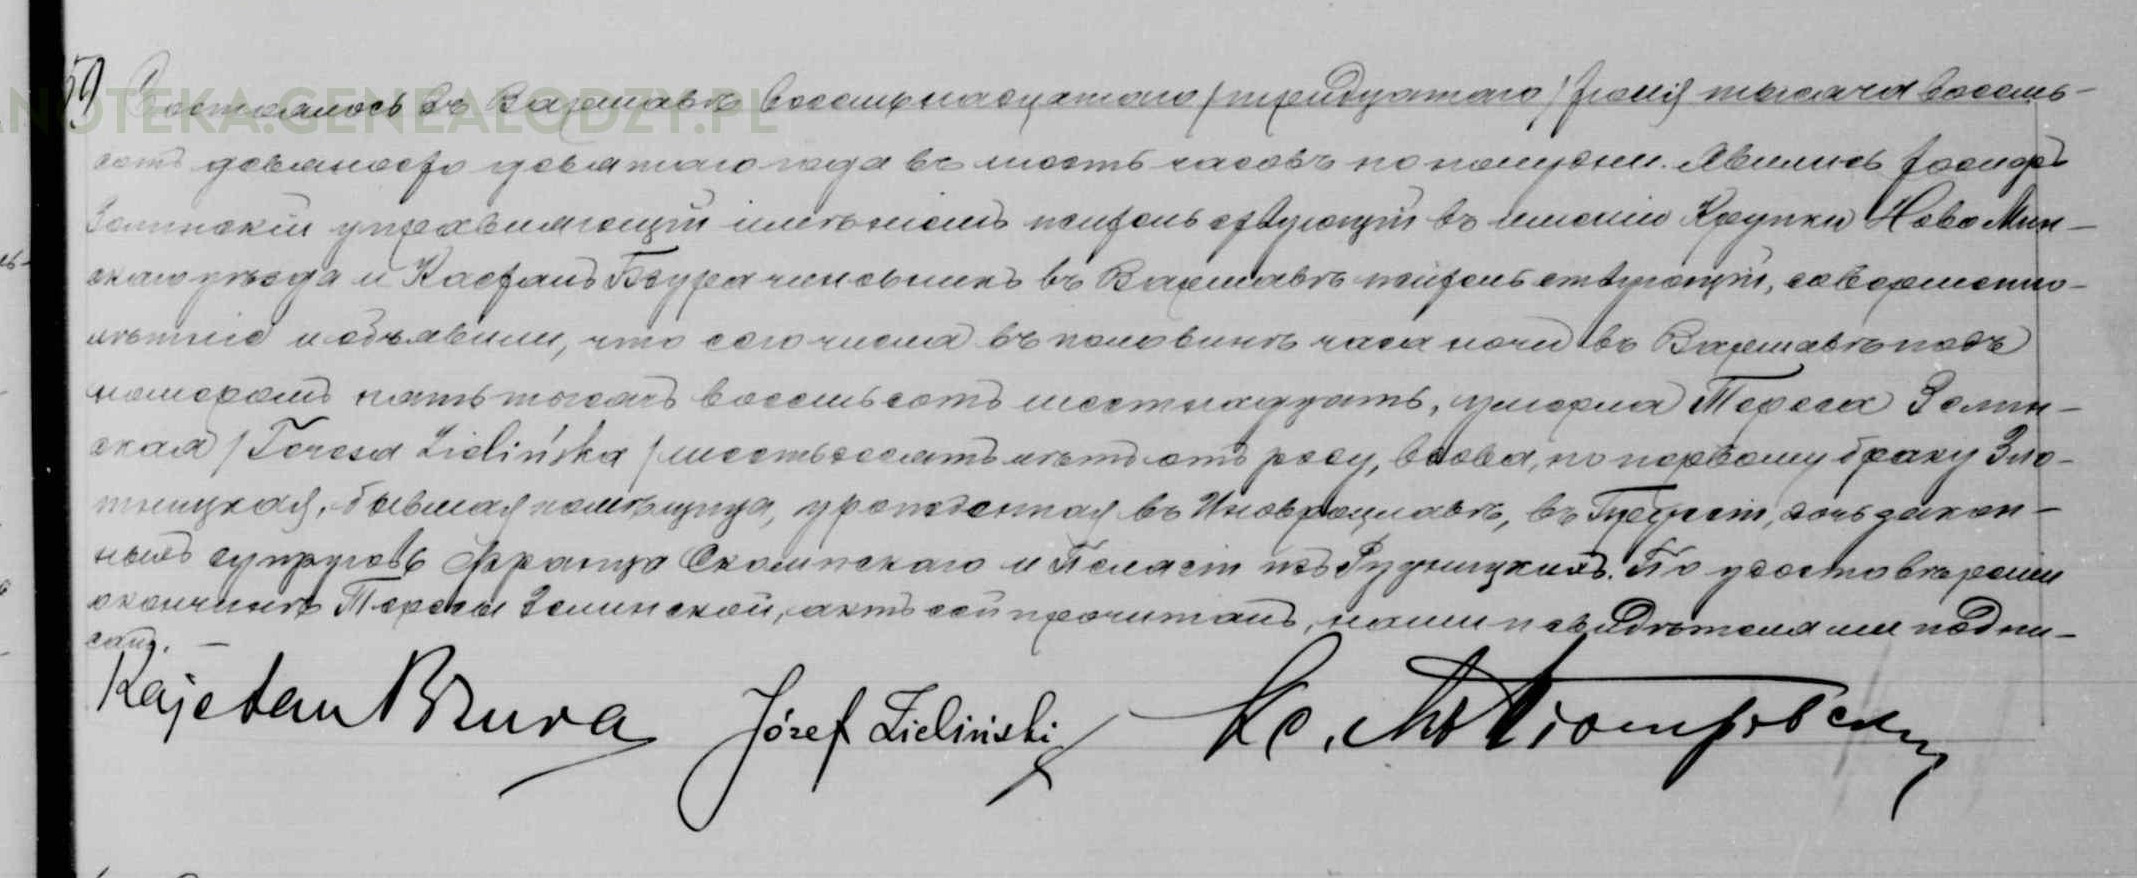 59
NOTEKA.GENEALODZY.PL
Состоялось въ Варшавѣ восемьнадцатаго /тридцатаго/ Іюня тысяча восемь-
сотъ девяносто девятаго года въ шесть часовъ по полудни. Явились Іосифъ
Зелинскій управляющій имѣніемъ жительствующій въ имѣніи Крупки Ново Мин-
скаго уѣзда и Каетанъ Бзура чиновникъ въ Варшавѣ жительствующій, совершенно-
лѣтніе и объявили, что сего числа въ половинѣ часа ночи въ Варшавѣ подъ
номеромъ пять тысячъ восемьсотъ шестнадцать, умерла Тереса Зелин-
ская /Teresa Zielińska/ шестьдесятъ лѣтъ отъ роду, вдова, по первому браку Зло-
тницкая, бывшая помѣщица, урожденная въ Иновроцлавѣ, въ Пруссіи, дочь закон-
ныхъ супруговъ Франца Сколинскаго и Пелагіи изъ Рудницкихъ. По удостовѣреніи
о кончинѣ Тересы Зелинской, актъ сей прочитанъ, нами и свидѣтелями подпи-
санъ. —
Kajetan Bzura Józef Zieliński Кс.